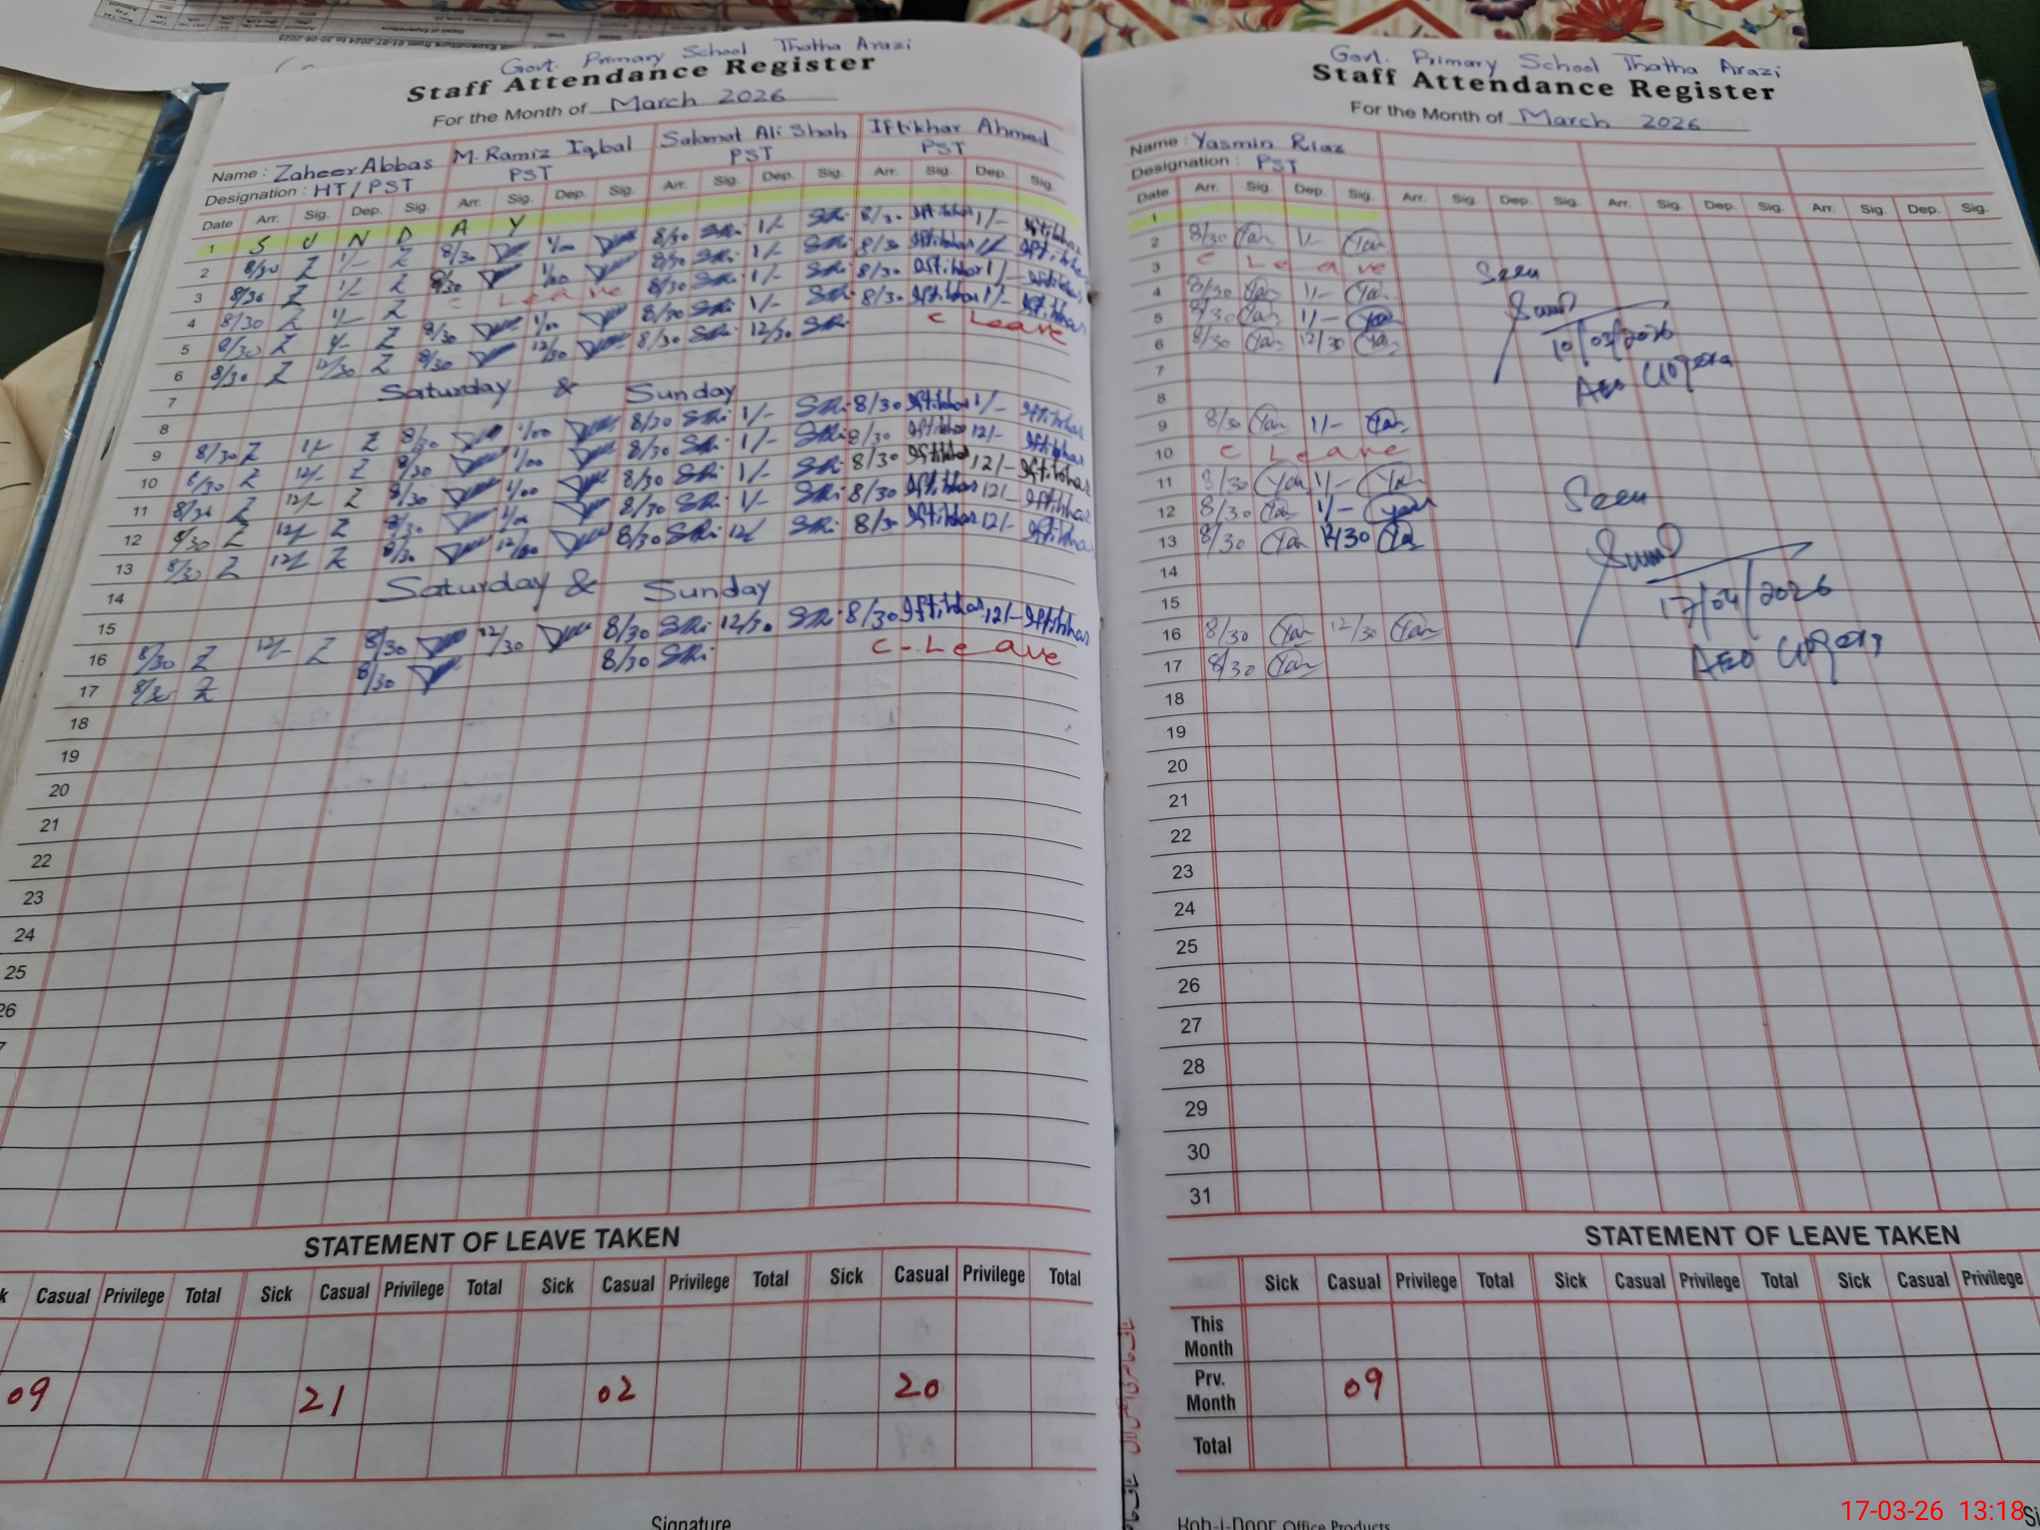 Govt. Primary School Thatha Arazi
Staff Attendance Register
For the Month of March 2026
Name : Zaheer Abbas M. Ramiz Iqbal Salamat Ali Shah Iftikhar Ahmad
Designation : HT/PST PST PST PST
Date Arr. Sig. Dep. Sig. Arr. Sig. Dep. Sig. Arr. Sig. Dep. Sig. Arr. Sig. Dep. Sig.
1 S U N D A Y
2 8/30 Z 1/- Z 8/30 1/00 8/30 SRi 1/- SRi 8/30 Iftikhar 1/- Iftikhar
3 8/30 Z 1/- Z 8/30 1/00 8/30 SRi 1/- SRi 8/30 Iftikhar 1/- Iftikhar
4 8/30 Z 1/- Z C Leave 8/30 SRi 1/- SRi 8/30 Iftikhar 1/- Iftikhar
5 8/30 Z Z 8/30 1/00 8/30 SRi 1/- SRi 8/30 Iftikhar 1/- Iftikhar
6 8/30 Z 12/30 Z 8/30 12/30 8/30 SRi 12/30 SRi C Leave
7 Saturday & Sunday
8
9 8/30 Z 1/- Z 8/30 1/00 8/30 SRi 1/- SRi 8/30 Iftikhar 1/- Iftikhar
10 8/30 Z 12/- Z 8/30 1/00 8/30 SRi 1/- SRi 8/30 Iftikhar 12/- Iftikhar
11 8/30 Z 12/- Z 8/30 1/00 8/30 SRi 1/- SRi 8/30 Iftikhar 12/- Iftikhar
12 8/30 Z 12/- Z 8/30 1/00 8/30 SRi 1/- SRi 8/30 Iftikhar 12/- Iftikhar
13 8/30 Z 12/- Z 8/30 12/00 8/30 SRi 12/ SRi 8/30 Iftikhar 12/- Iftikhar
14 Saturday & Sunday
15
16 8/30 Z 12/- Z 8/30 12/30 8/30 SRi 12/30 SRi 8/30 Iftikhar 12/- Iftikhar
17 8/30 Z 8/30 8/30 SRi C-Leave
18
19
20
21
22
23
24
25
26
STATEMENT OF LEAVE TAKEN
Casual Privilege Total Sick Casual Privilege Total Sick Casual Privilege Total Sick Casual Privilege Total
09 21 02 20
Signature
Govt. Primary School Thatha Arazi
Staff Attendance Register
For the Month of March 2026
Name : Yasmin Riaz
Designation : PST
Date Arr. Sig. Dep. Sig. Arr. Sig. Dep. Sig. Arr. Sig. Dep. Sig. Arr. Sig. Dep. Sig.
1
2 8/30 Yas 1/- Yas
3 C Leave
4 8/30 Yas 1/- Yas
5 8/30 Yas 1/- Yas
6 8/30 Yas 12/30 Yas
7
8
9 8/30 Yas 1/- Yas
10 C Leave
11 8/30 Yas 1/- Yas
12 8/30 Yas 1/- Yas
13 8/30 Yas 12/30 Yas
14
15
16 8/30 Yas 12/30 Yas
17 8/30 Yas
18
19
20
21
22
23
24
25
26
27
28
29
30
31
Seen
10/03/2026
AEO
Seen
17/04/2026
AEO
STATEMENT OF LEAVE TAKEN
Sick Casual Privilege Total Sick Casual Privilege Total Sick Casual Privilege
This Month
Prv. Month 09
Total
Office Products
17-03-26 13:18